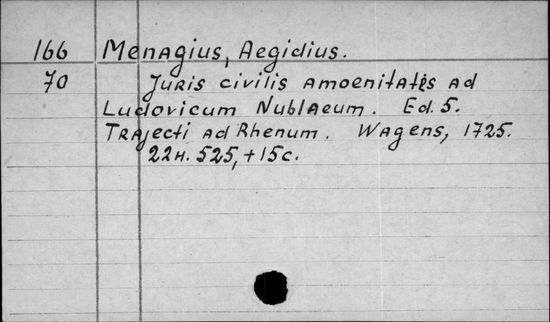 166 Menagius, Aegidius.
70 Juris civilis amoenitates ad
Ludovicum Nublaeum. Ed. 5.
Trajecti ad Rhenum. Wagens, 1725.
22н. 525, +15c.